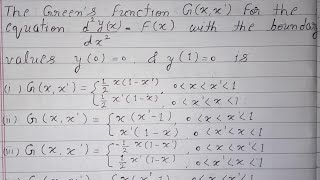 The Green's Function G(x,x') For the
equation d²y(x)/dx² = F(x) with the boundary
values y(0)=0, & y(1)=0 is
(i) G(x,x') = { ½ x(1-x'), 0<x<x'<1
½ x'(1-x), 0<x'<x<1
(ii) G(x,x') = { x(x'-1), 0<x<x'<1
x'(1-x), 0<x'<x<1
(iii) G(x,x') = { -½ x(1-x'), 0<x<x'<1
½ x'(1-x), 0<x'<x<1
G(x,x') = { x(x'-1), 0<x<x'<1